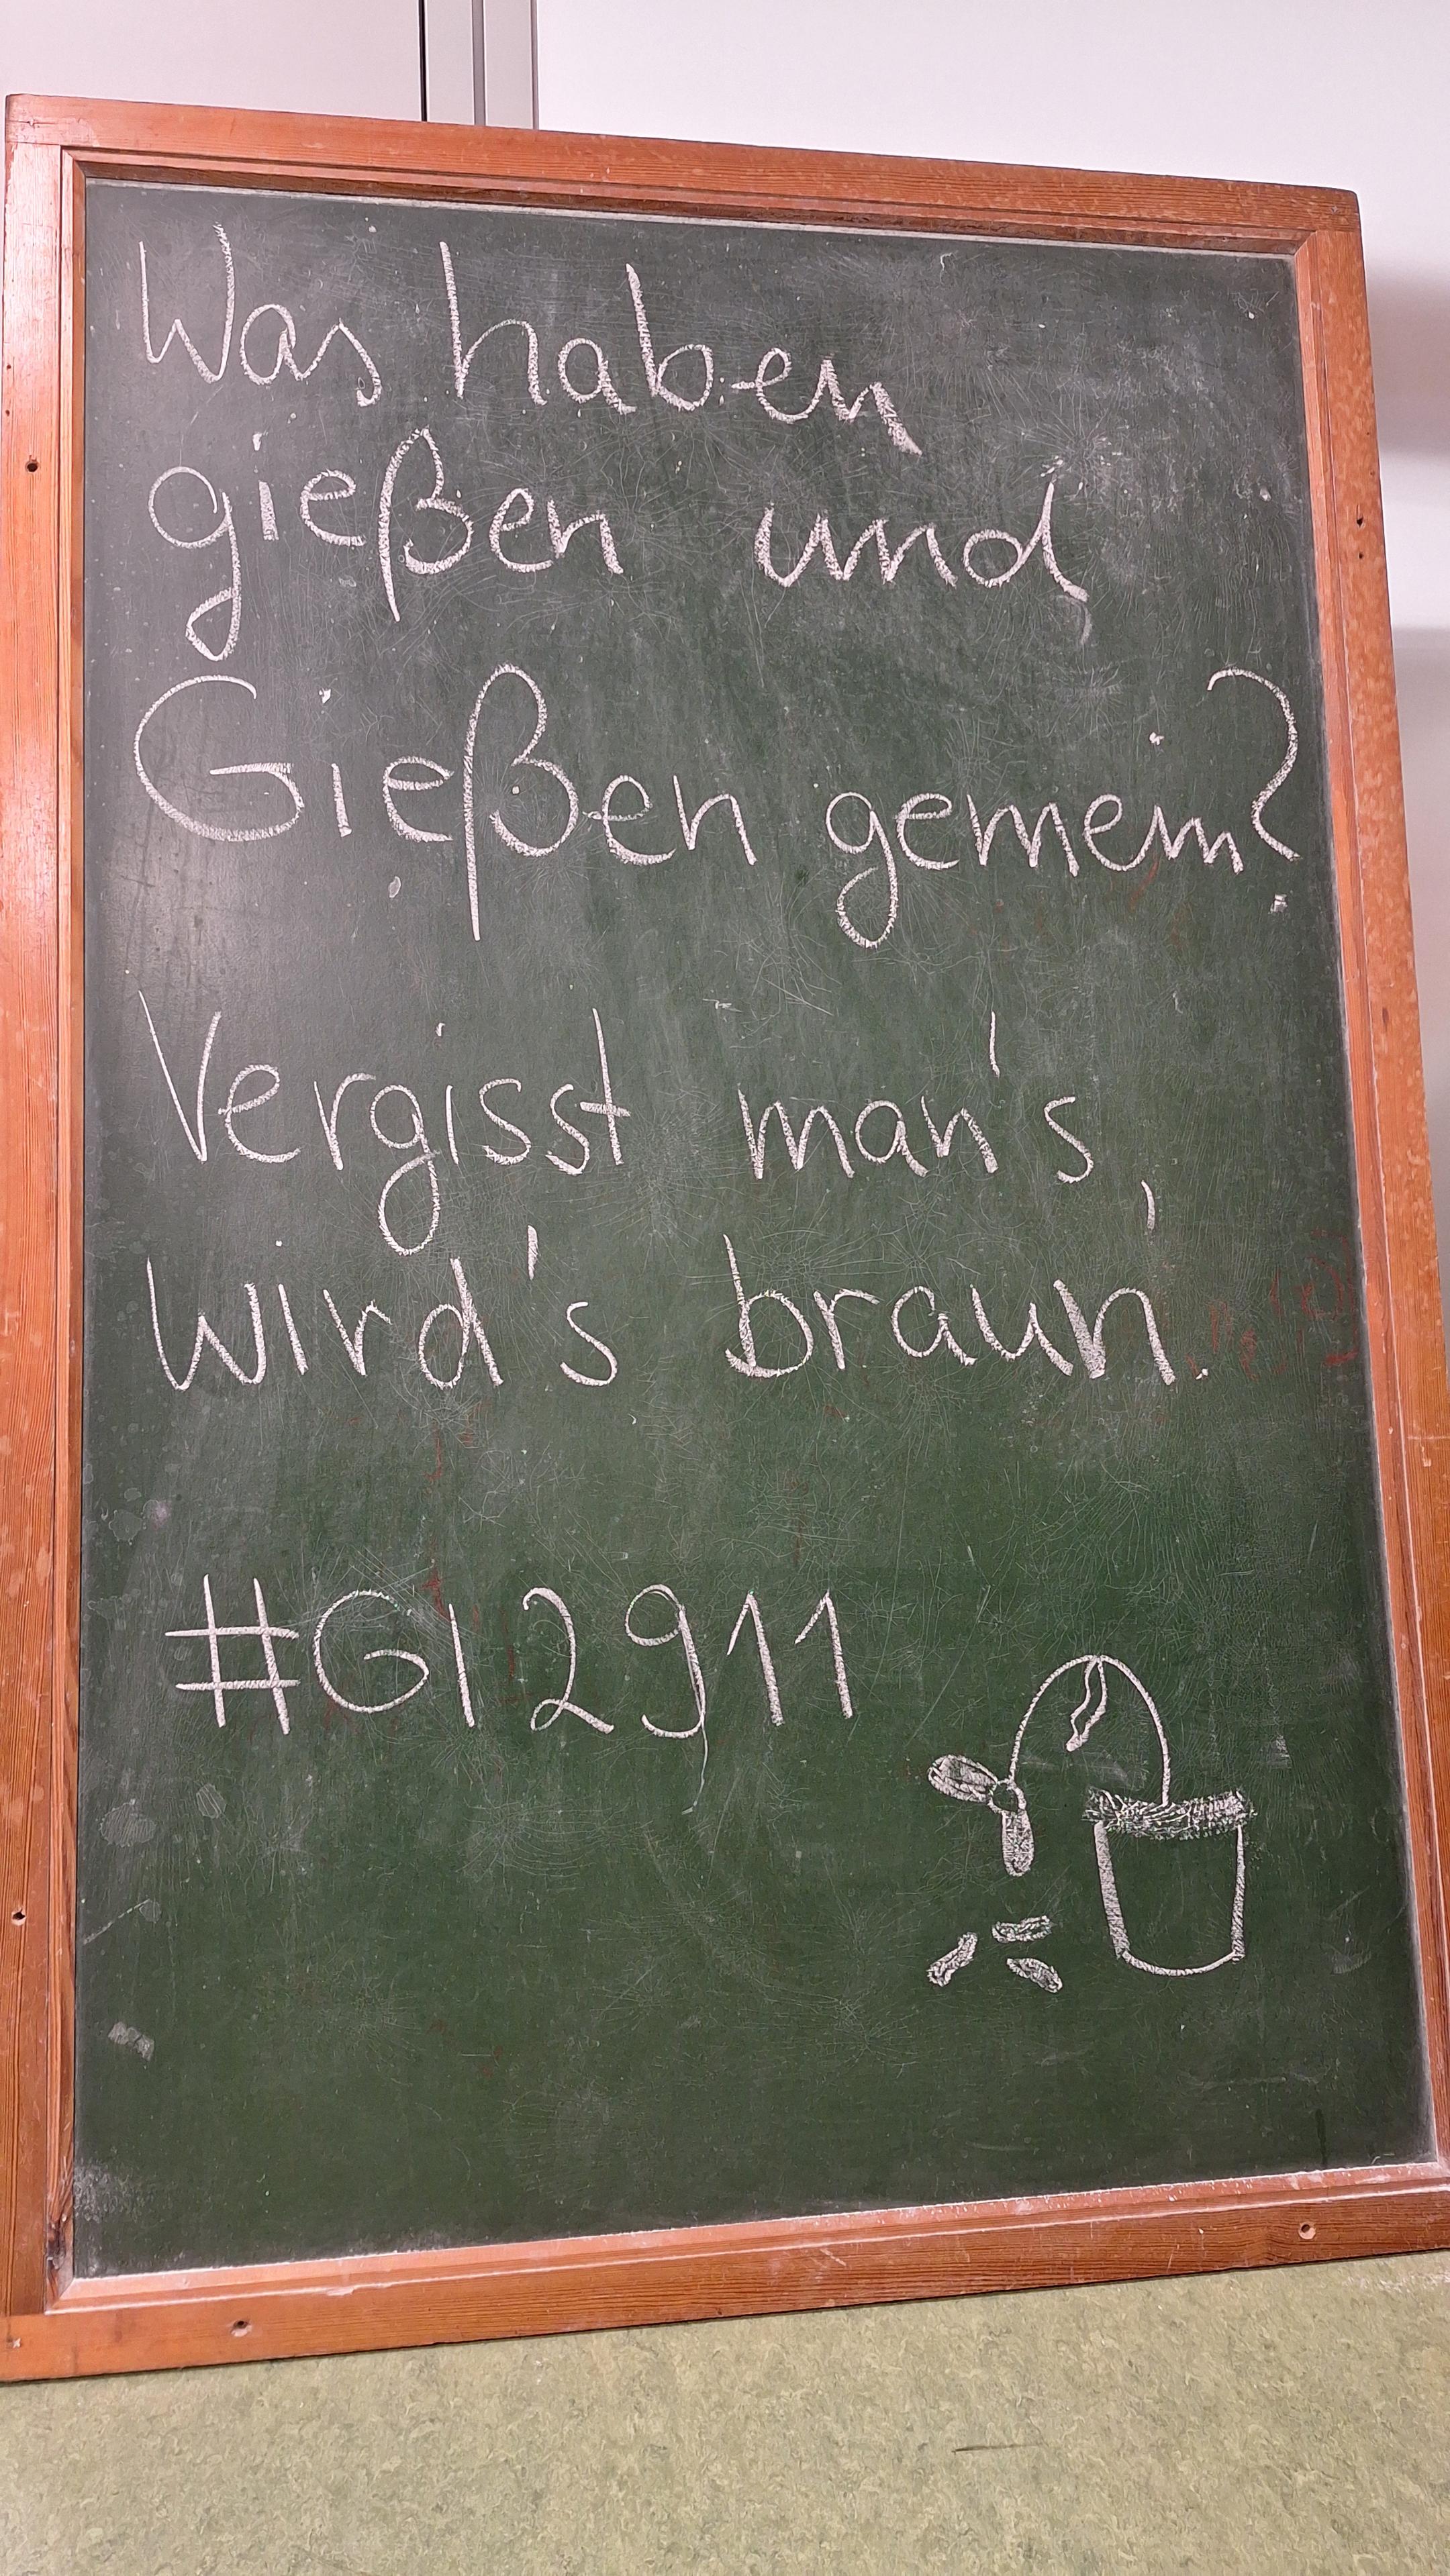 Was haben
gießen und
Gießen gemein?
Vergisst man's,
wird's braun.
#GI2911